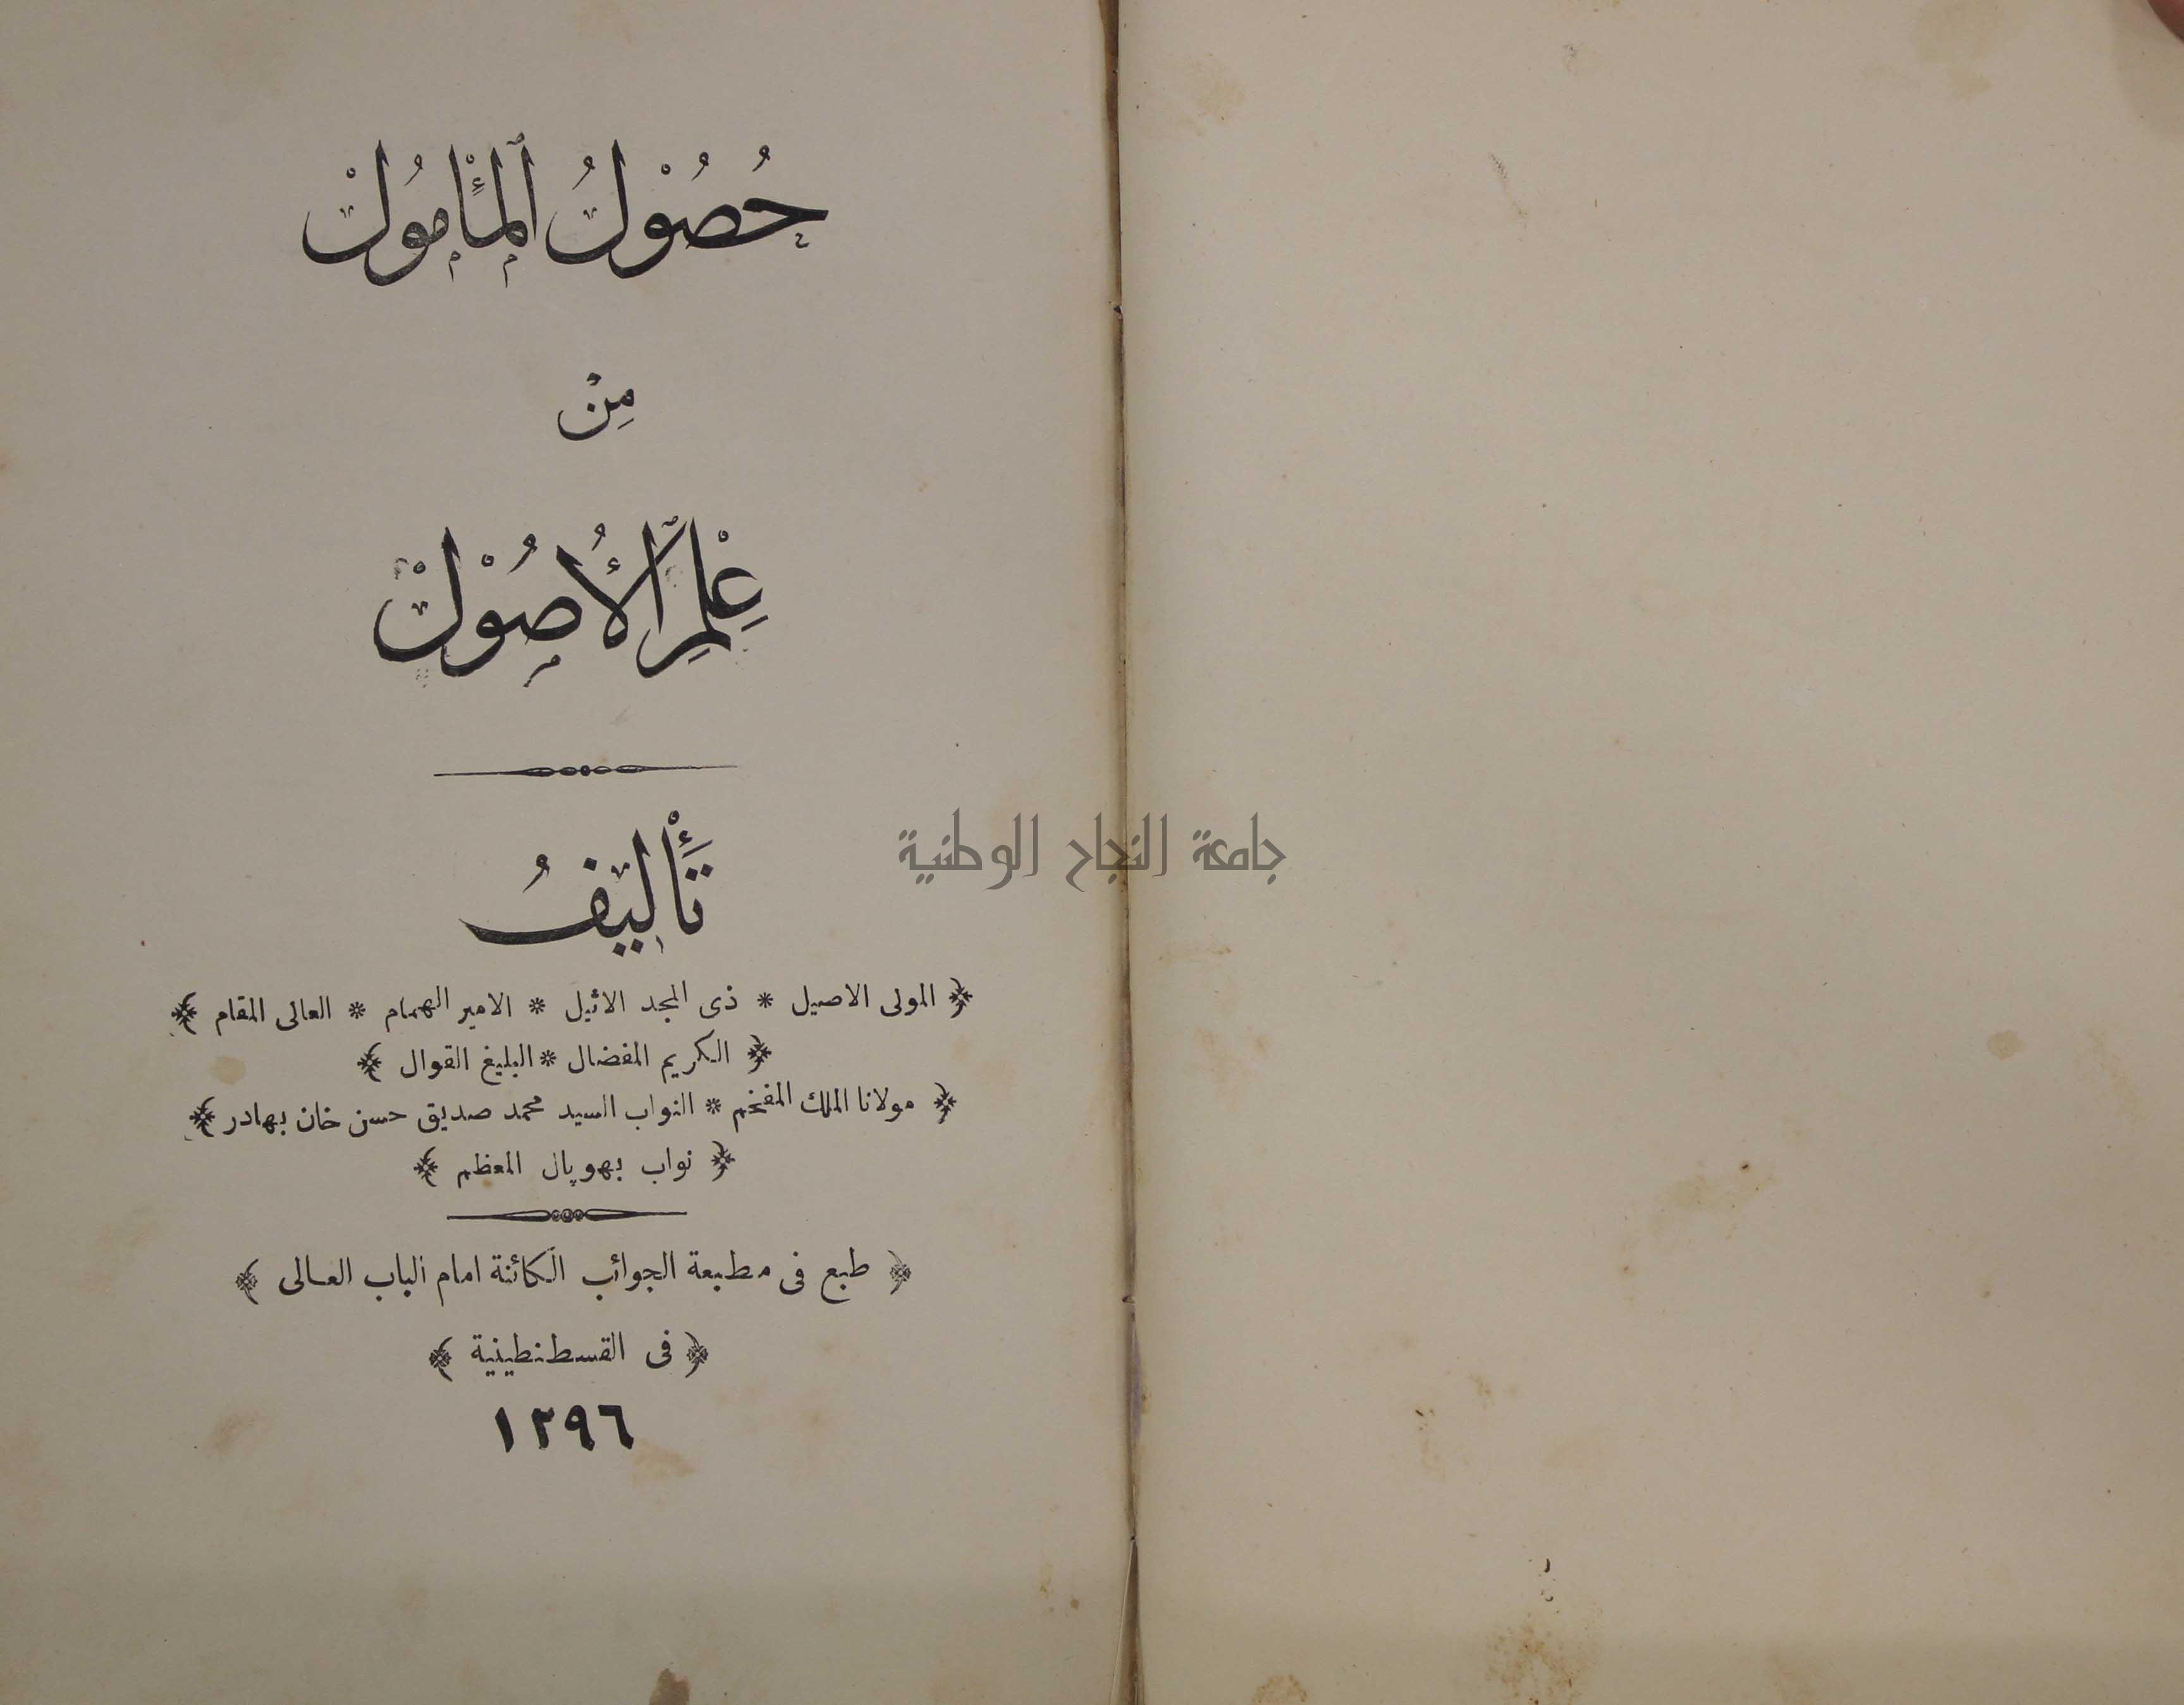 حُصُوْلُ اَلْمَأْمُولْ
مِنْ
عِلْمِ اَلْأُصُوْلْ
تَأْلِيْفُ
﴿ المولى الاصيل * ذى المجد الاثيل * الامير الهمام * العالى المقام ﴾
﴿ الكريم المفضال * البليغ القوال ﴾
﴿ مولانا الملك المفخم * النواب السيد محمد صديق حسن خان بهادر ﴾
﴿ نواب بهوپال المعظم ﴾
﴿ طبع فى مطبعة الجوائب الكائنة امام الباب العالى ﴾
﴿ فى القسطنطينية ﴾
١٢٩٦
جامعة النجاح الوطنية